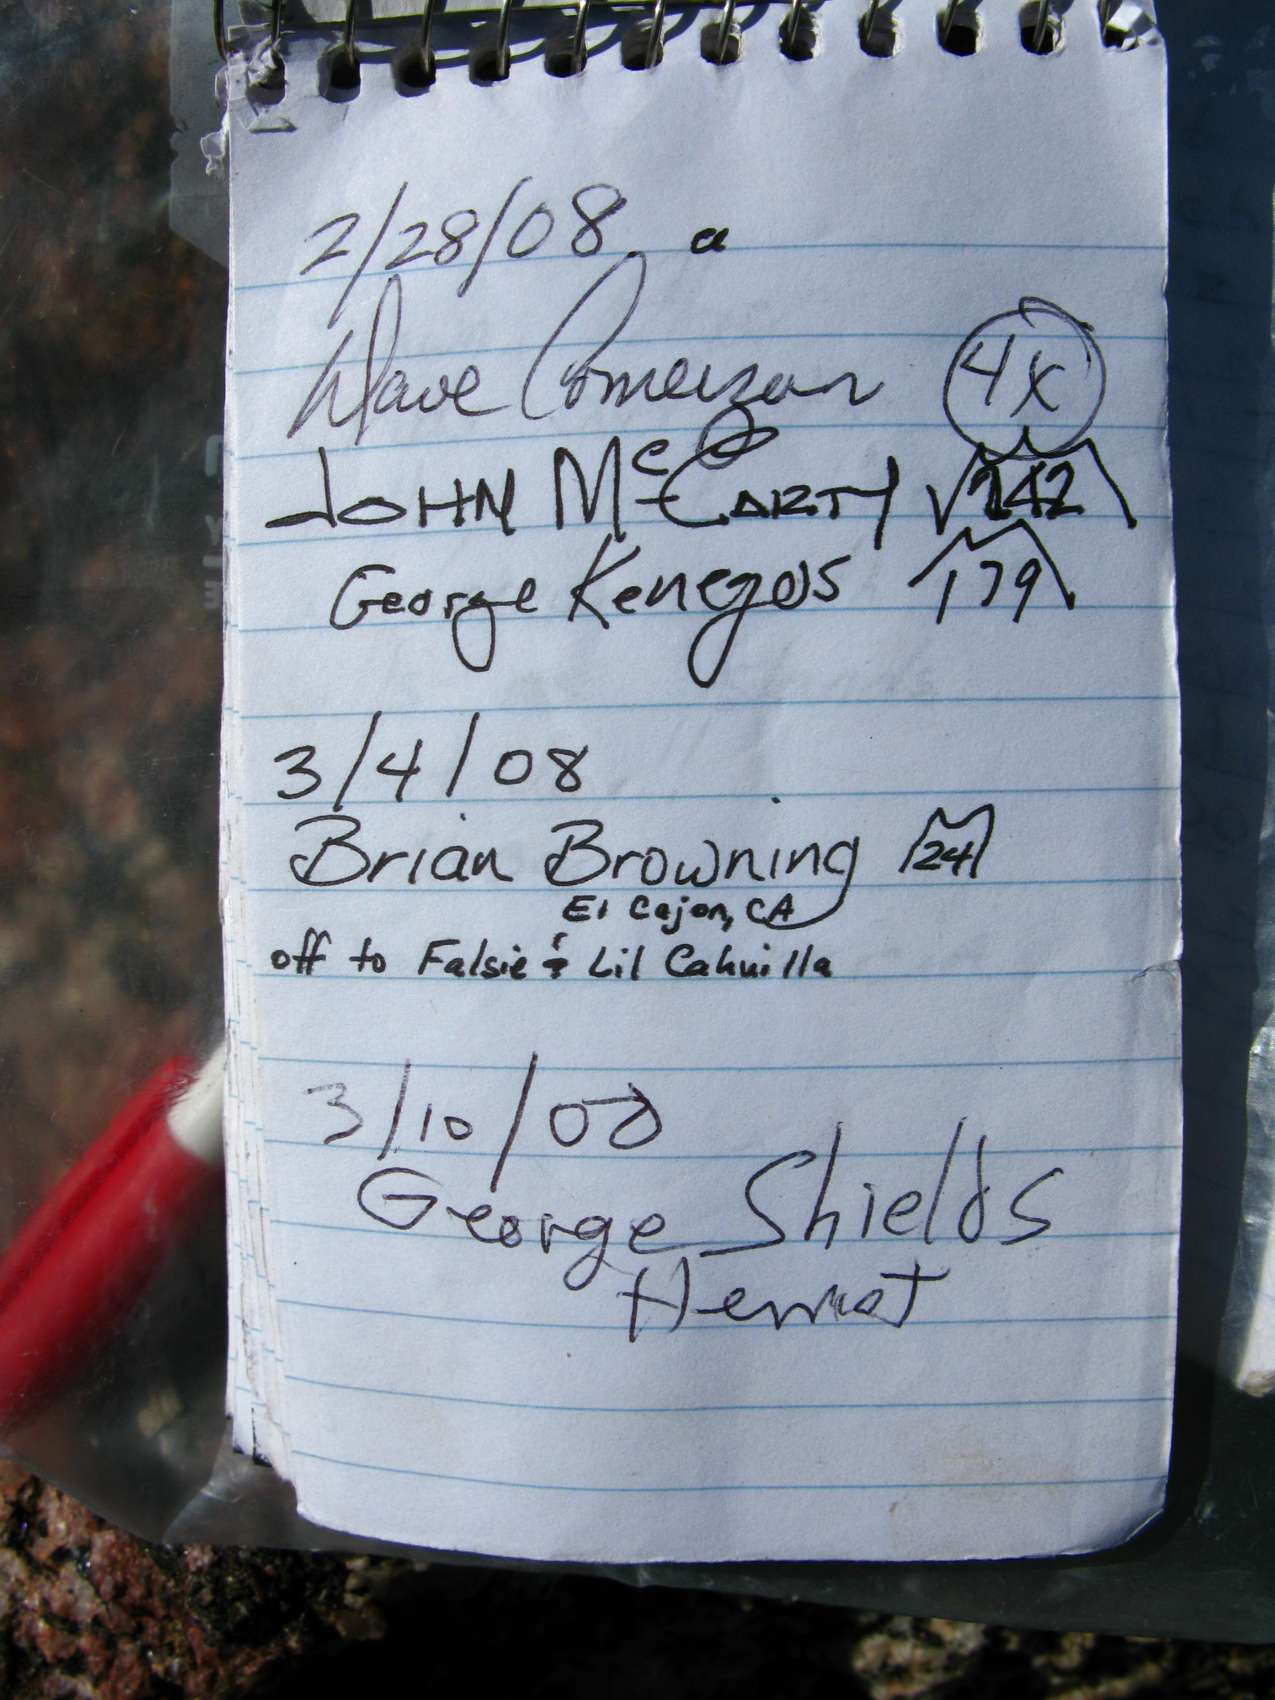 2/28/08 a
Dave Comerzan 4X
JOHN McCARTY 242
George Kenegos 179
3/4/08
Brian Browning 24
El Cajon, CA
off to Falsie & Lil Cahuilla
3/10/08
George Shields
Hemet